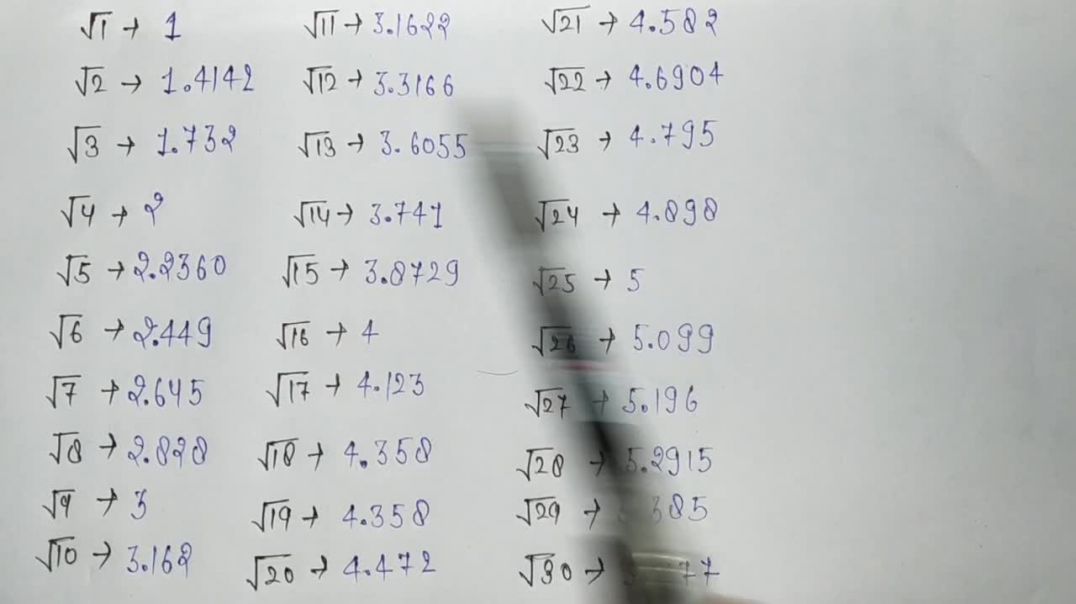 √1 → 1
√2 → 1.4142
√3 → 1.732
√4 → 2
√5 → 2.2360
√6 → 2.449
√7 → 2.645
√8 → 2.828
√9 → 3
√10 → 3.162
√11 → 3.1622
√12 → 3.3166
√13 → 3.6055
√14 → 3.741
√15 → 3.8729
√16 → 4
√17 → 4.123
√18 → 4.358
√19 → 4.358
√20 → 4.472
√21 → 4.582
√22 → 4.6904
√23 → 4.795
√24 → 4.898
√25 → 5
√26 → 5.099
√27 → 5.196
√28 → 5.2915
√29 →
√30 →